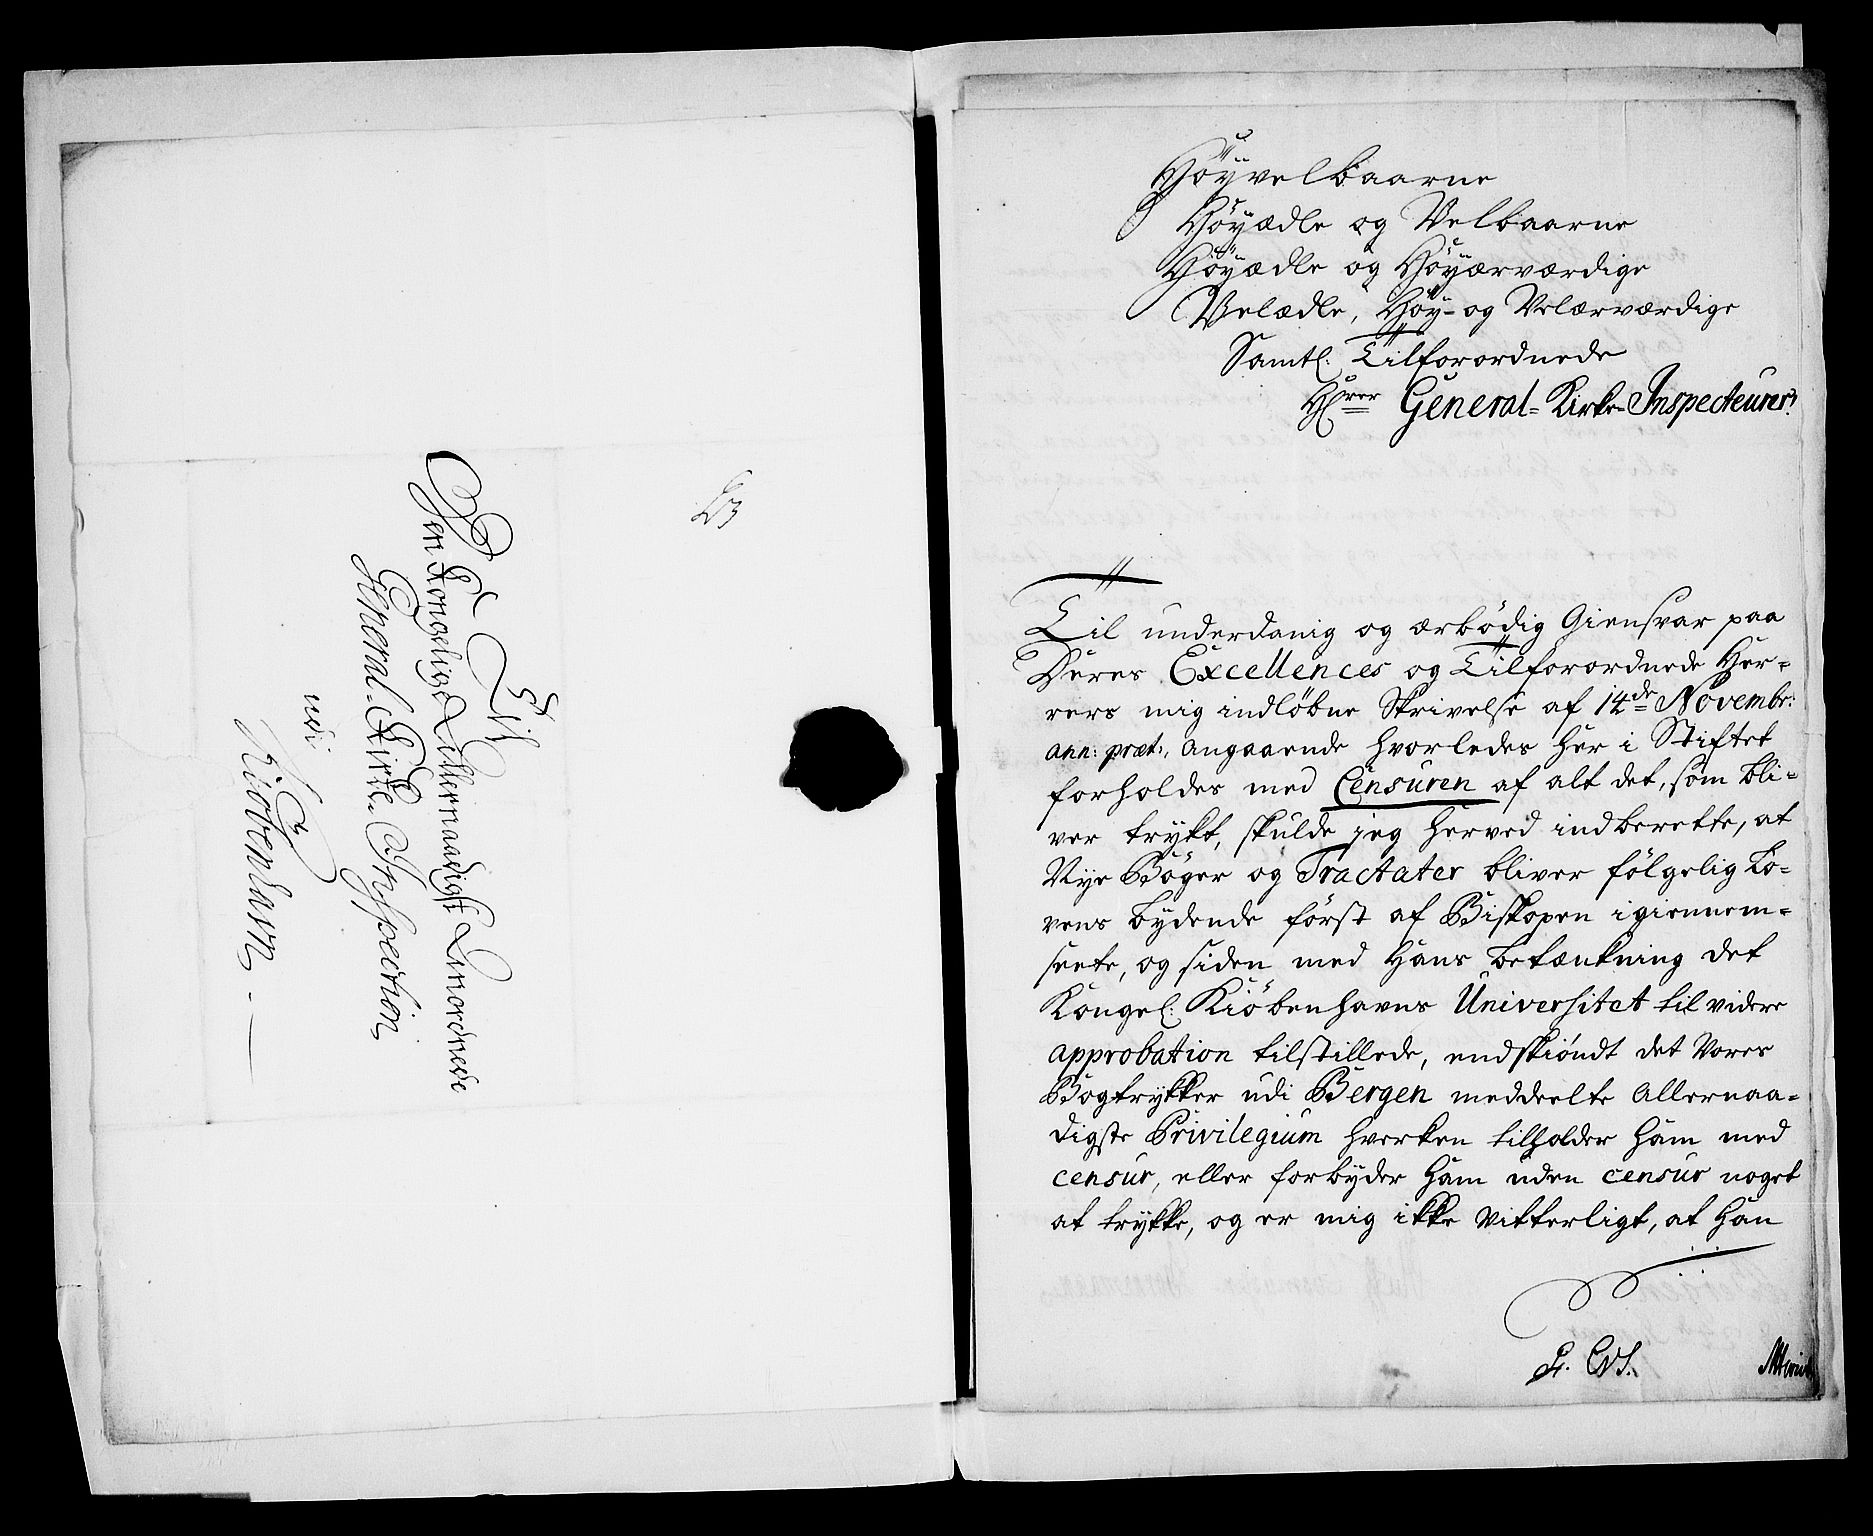 Til
Den Kongelige Allernaadigst Anordnede
General-Kirke-Inspection
udi
Kiøbenhavn
Høyvelbaarne
Høyædle og Velbaarne
Høyædle og Høyærværdige
Velædle, Høy- og Velærværdige
Samtl: Tilforordnede
Hrer General-Kirke-Inspecteurer
Til underdanig og ærbødig Giensvar paa
Deres Excellences og Tilforordnede Her-
rers mig indløbne Skrivelse af 14de Novembr:
ann: præt:, angaaende hvorledes her i Stiftet
forholdes med Censuren af alt det, som bli-
ver trykt, skulde jeg herved indberette, at
Nye Bøger og Tractater bliver følgelig Lo-
vens bydende først af Biskopen igiennem-
seete, og siden med hans betænkning det
Kongel: Kiøbenhavns Universitet til videre
approbation tilstillede, endskiøndt det Vores
Bogtrykker udi Bergen meddeelte Allernaa-
digste Privilegium hverken tilholder ham med
censur, eller forbyder ham uden censur noget
at trykke, og er mig ikke vitterligt, at han